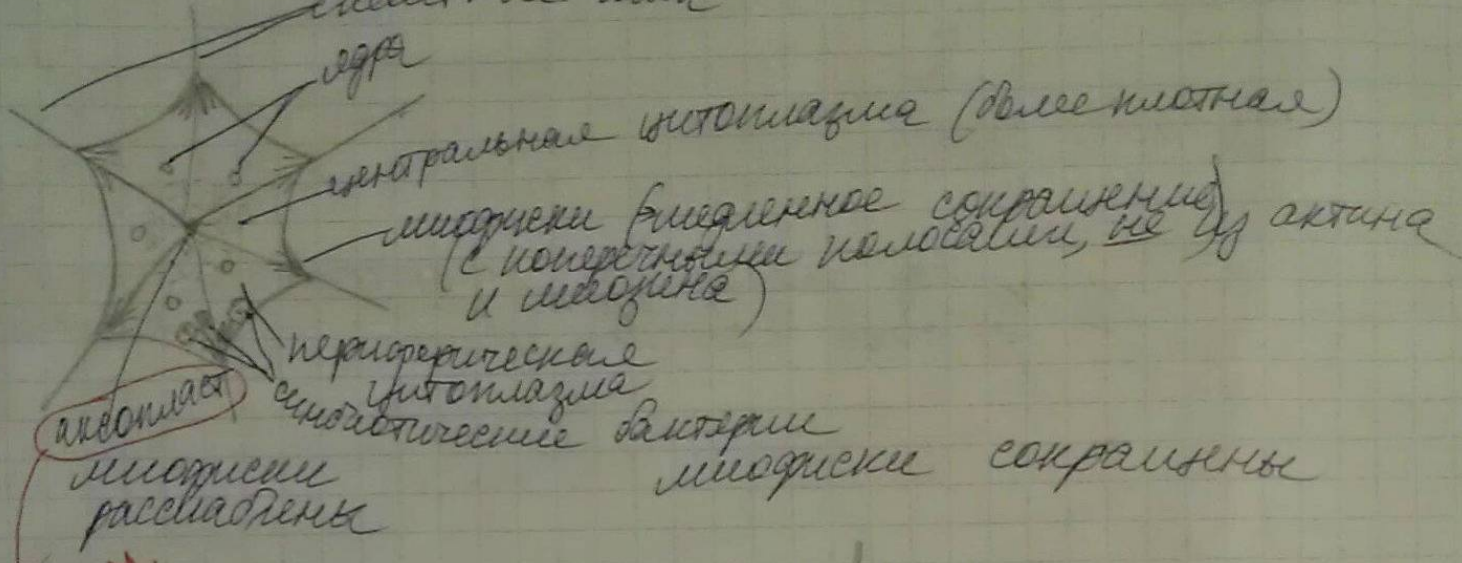 ядра
центральная цитоплазма (более плотная)
миофриски (медленное сокращение)
(с поперечными полосами, не из актина
и миозина)
периферическая
цитоплазма
аксопласт
симбиотические бактерии
миофриски
расслаблены
миофриски сокращены